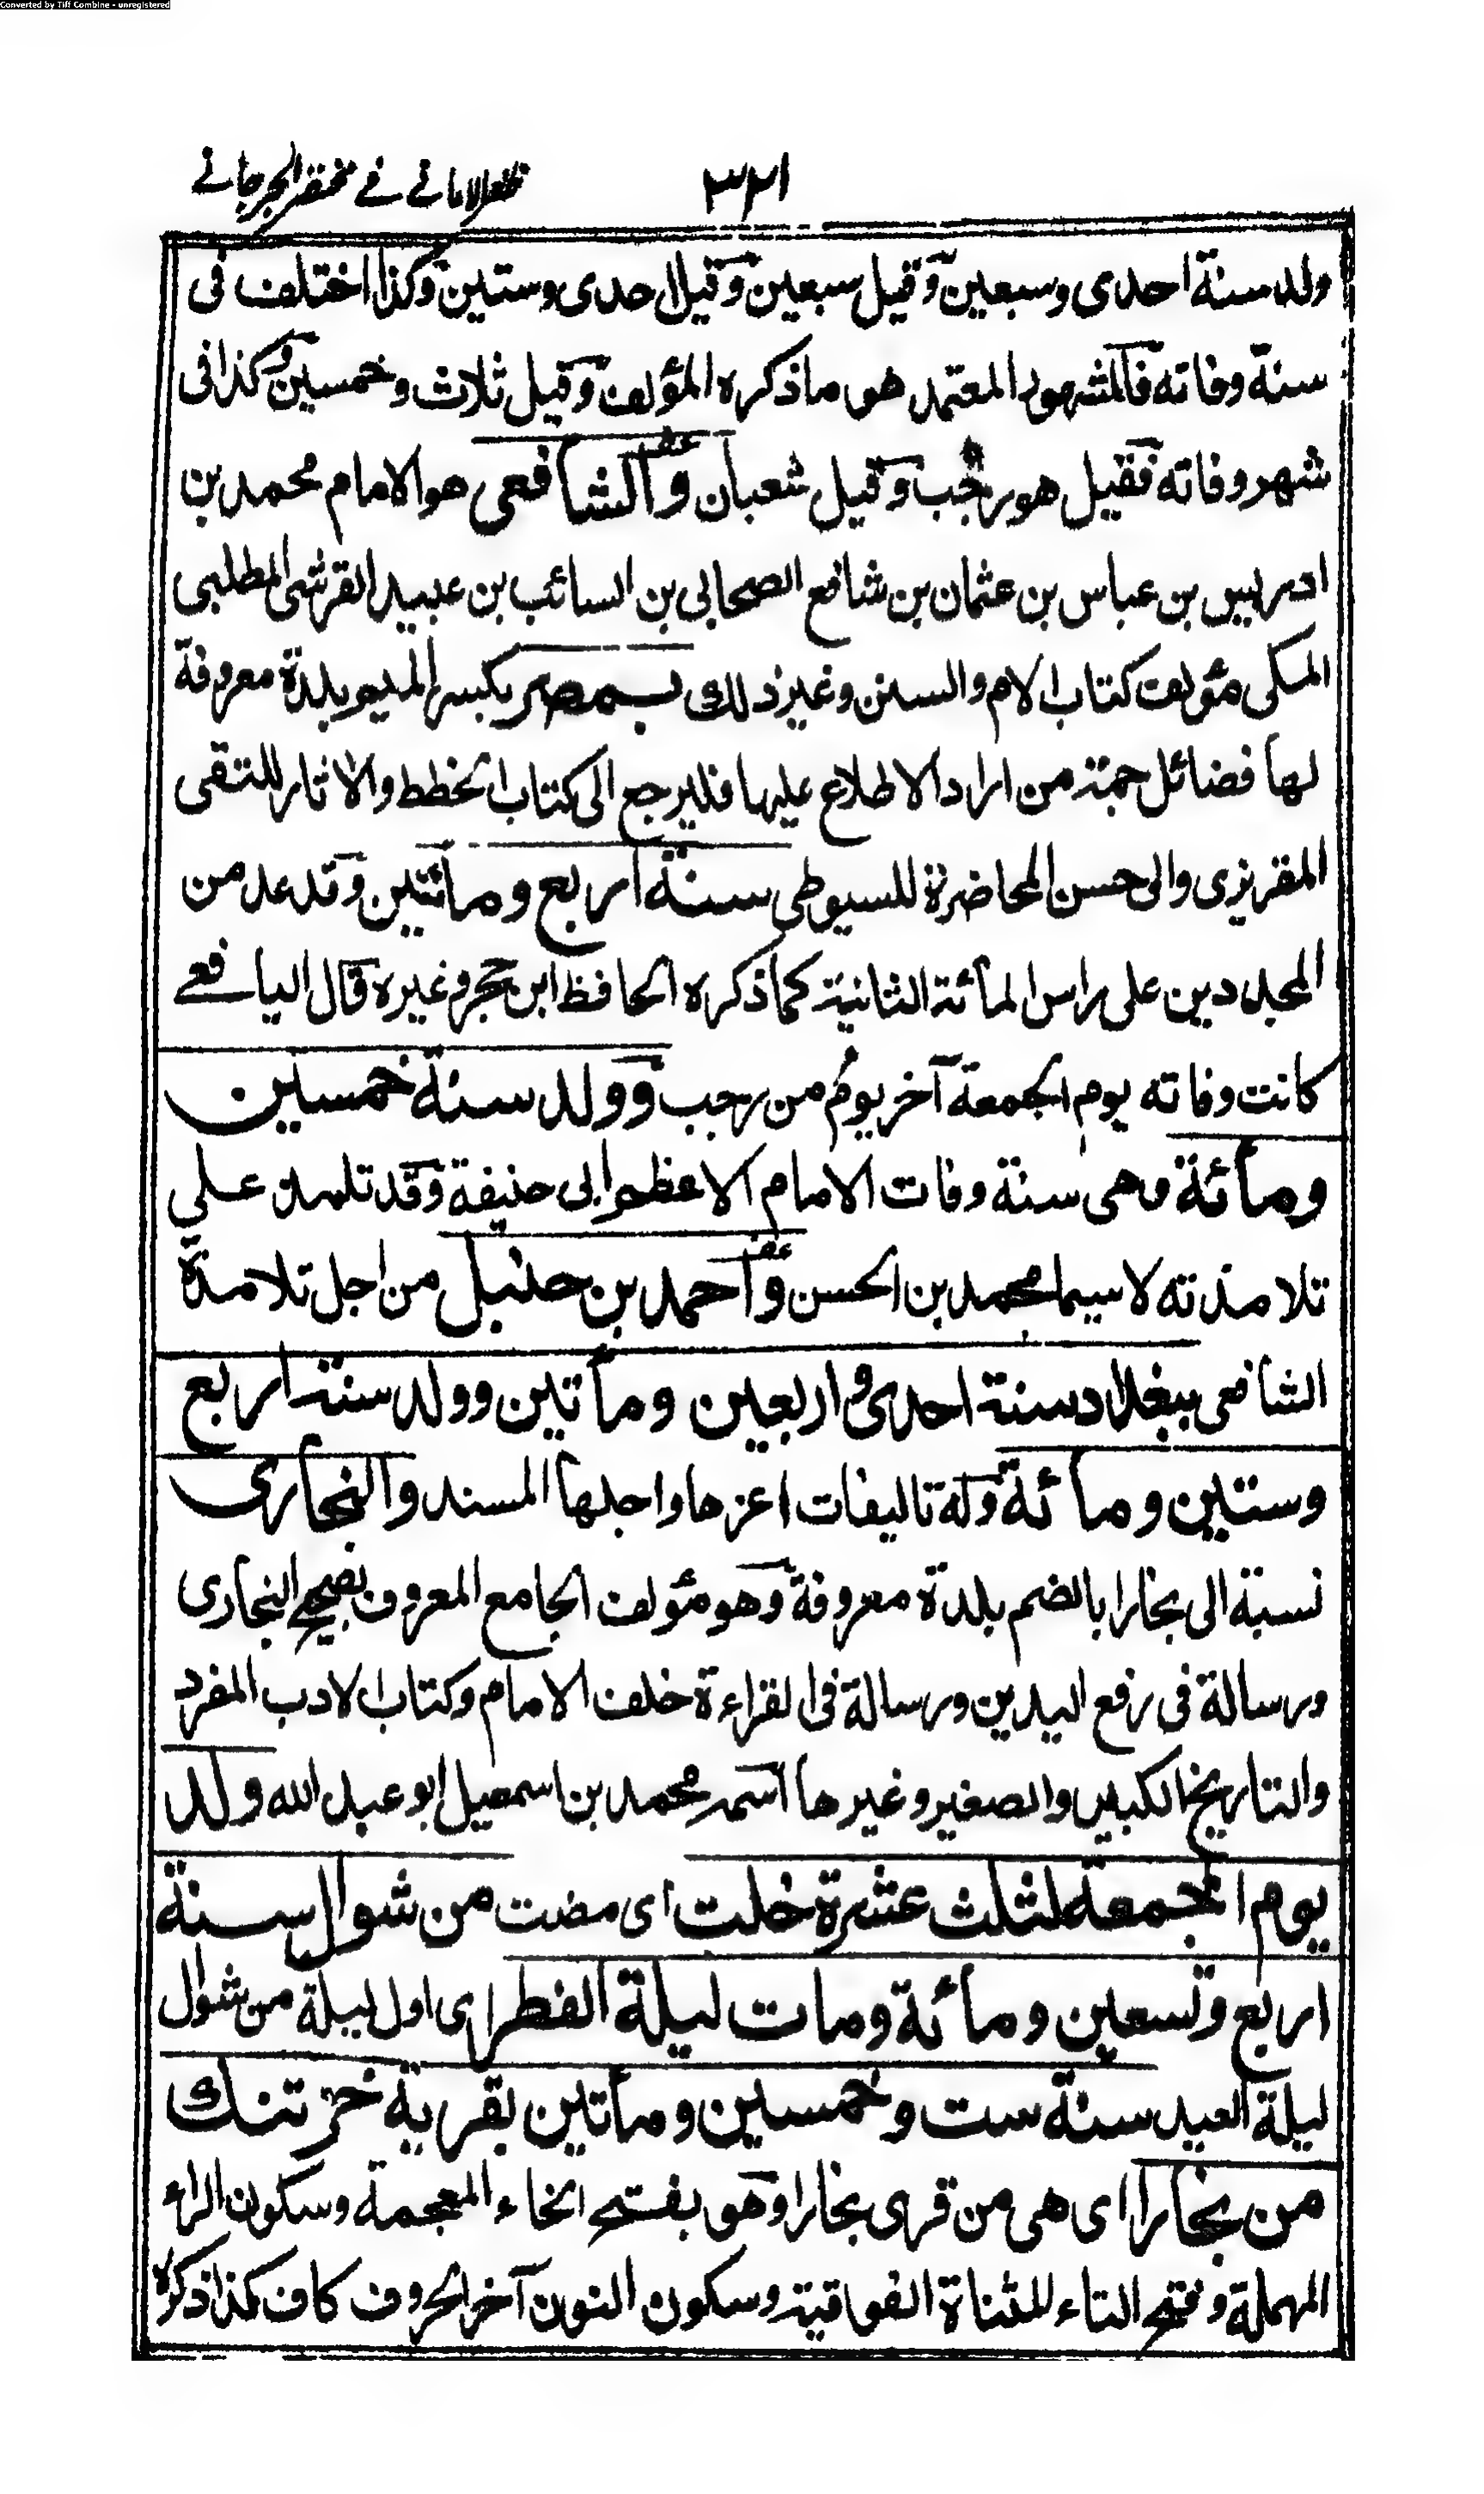 Converted by Tiff Combine - unregistered
٣٢١ ظفر الاماني في مختصر الجرجاني
ولد سنة احدى وسبعين وقيل سبعين وقيل احدى وستين وكذا اختلف في
سنة وفاته فالمشهور المعتمد هو ما ذكره المؤلف وقيل ثلاث وخمسين وكذا في
شهر وفاته فقيل هو رجب وقيل شعبان والشافعي هو الامام محمد بن
ادريس بن عباس بن عثمان بن شافع الصحابي بن السائب بن عبيد القرشي المطلبي
المكي مؤلف كتاب الام والسنن وغير ذلك بمصر بكسر الميم بلدة معروفة
لها فضائل جمة من اراد الاطلاع عليها فليرجع الى كتاب الخطط والاثار للتقي
المقريزي والى حسن المحاضرة للسيوطي سنة اربع ومأتين وقد عد من
المجددين على راس المائة الثانية كما ذكره الحافظ ابن حجر وغيره قال اليافعي
كانت وفاته يوم الجمعة آخر يوم من رجب وولد سنة خمسين
ومأئة وهي سنة وفات الامام الاعظم ابي حنيفة وقد تلمذ علي
تلامذته لاسيما محمد بن الحسن واحمد بن حنبل من اجل تلامذة
الشافعي ببغداد سنة احدى واربعين ومأتين وولد سنة اربع
وستين ومأئة وله تاليفات اعزها واجلها المسند والبخاري
نسبة الى بخارا بالضم بلدة معروفة وهو مؤلف الجامع المعروف بصحيح البخاري
ورسالة في رفع اليدين ورسالة في القراءة خلف الامام وكتاب الادب المفرد
والتاريخ الكبير والصغير وغيرها اسمه محمد بن اسمعيل ابو عبد الله ولد
يوم الجمعة لثلث عشرة خلت اى مضت من شوال سنة
اربع وتسعين ومأئة ومات ليلة الفطر اى اول ليلة من شوال
ليلة العيد سنة ست وخمسين ومأتين بقرية خرتنك
من بخارا اى هي من قرى بخارا وهو بفتح الخاء المعجمة وسكون الراء
المهملة وفتح التاء المثناة الفوقية وسكون النون آخر الحروف كاف كذا ذكره